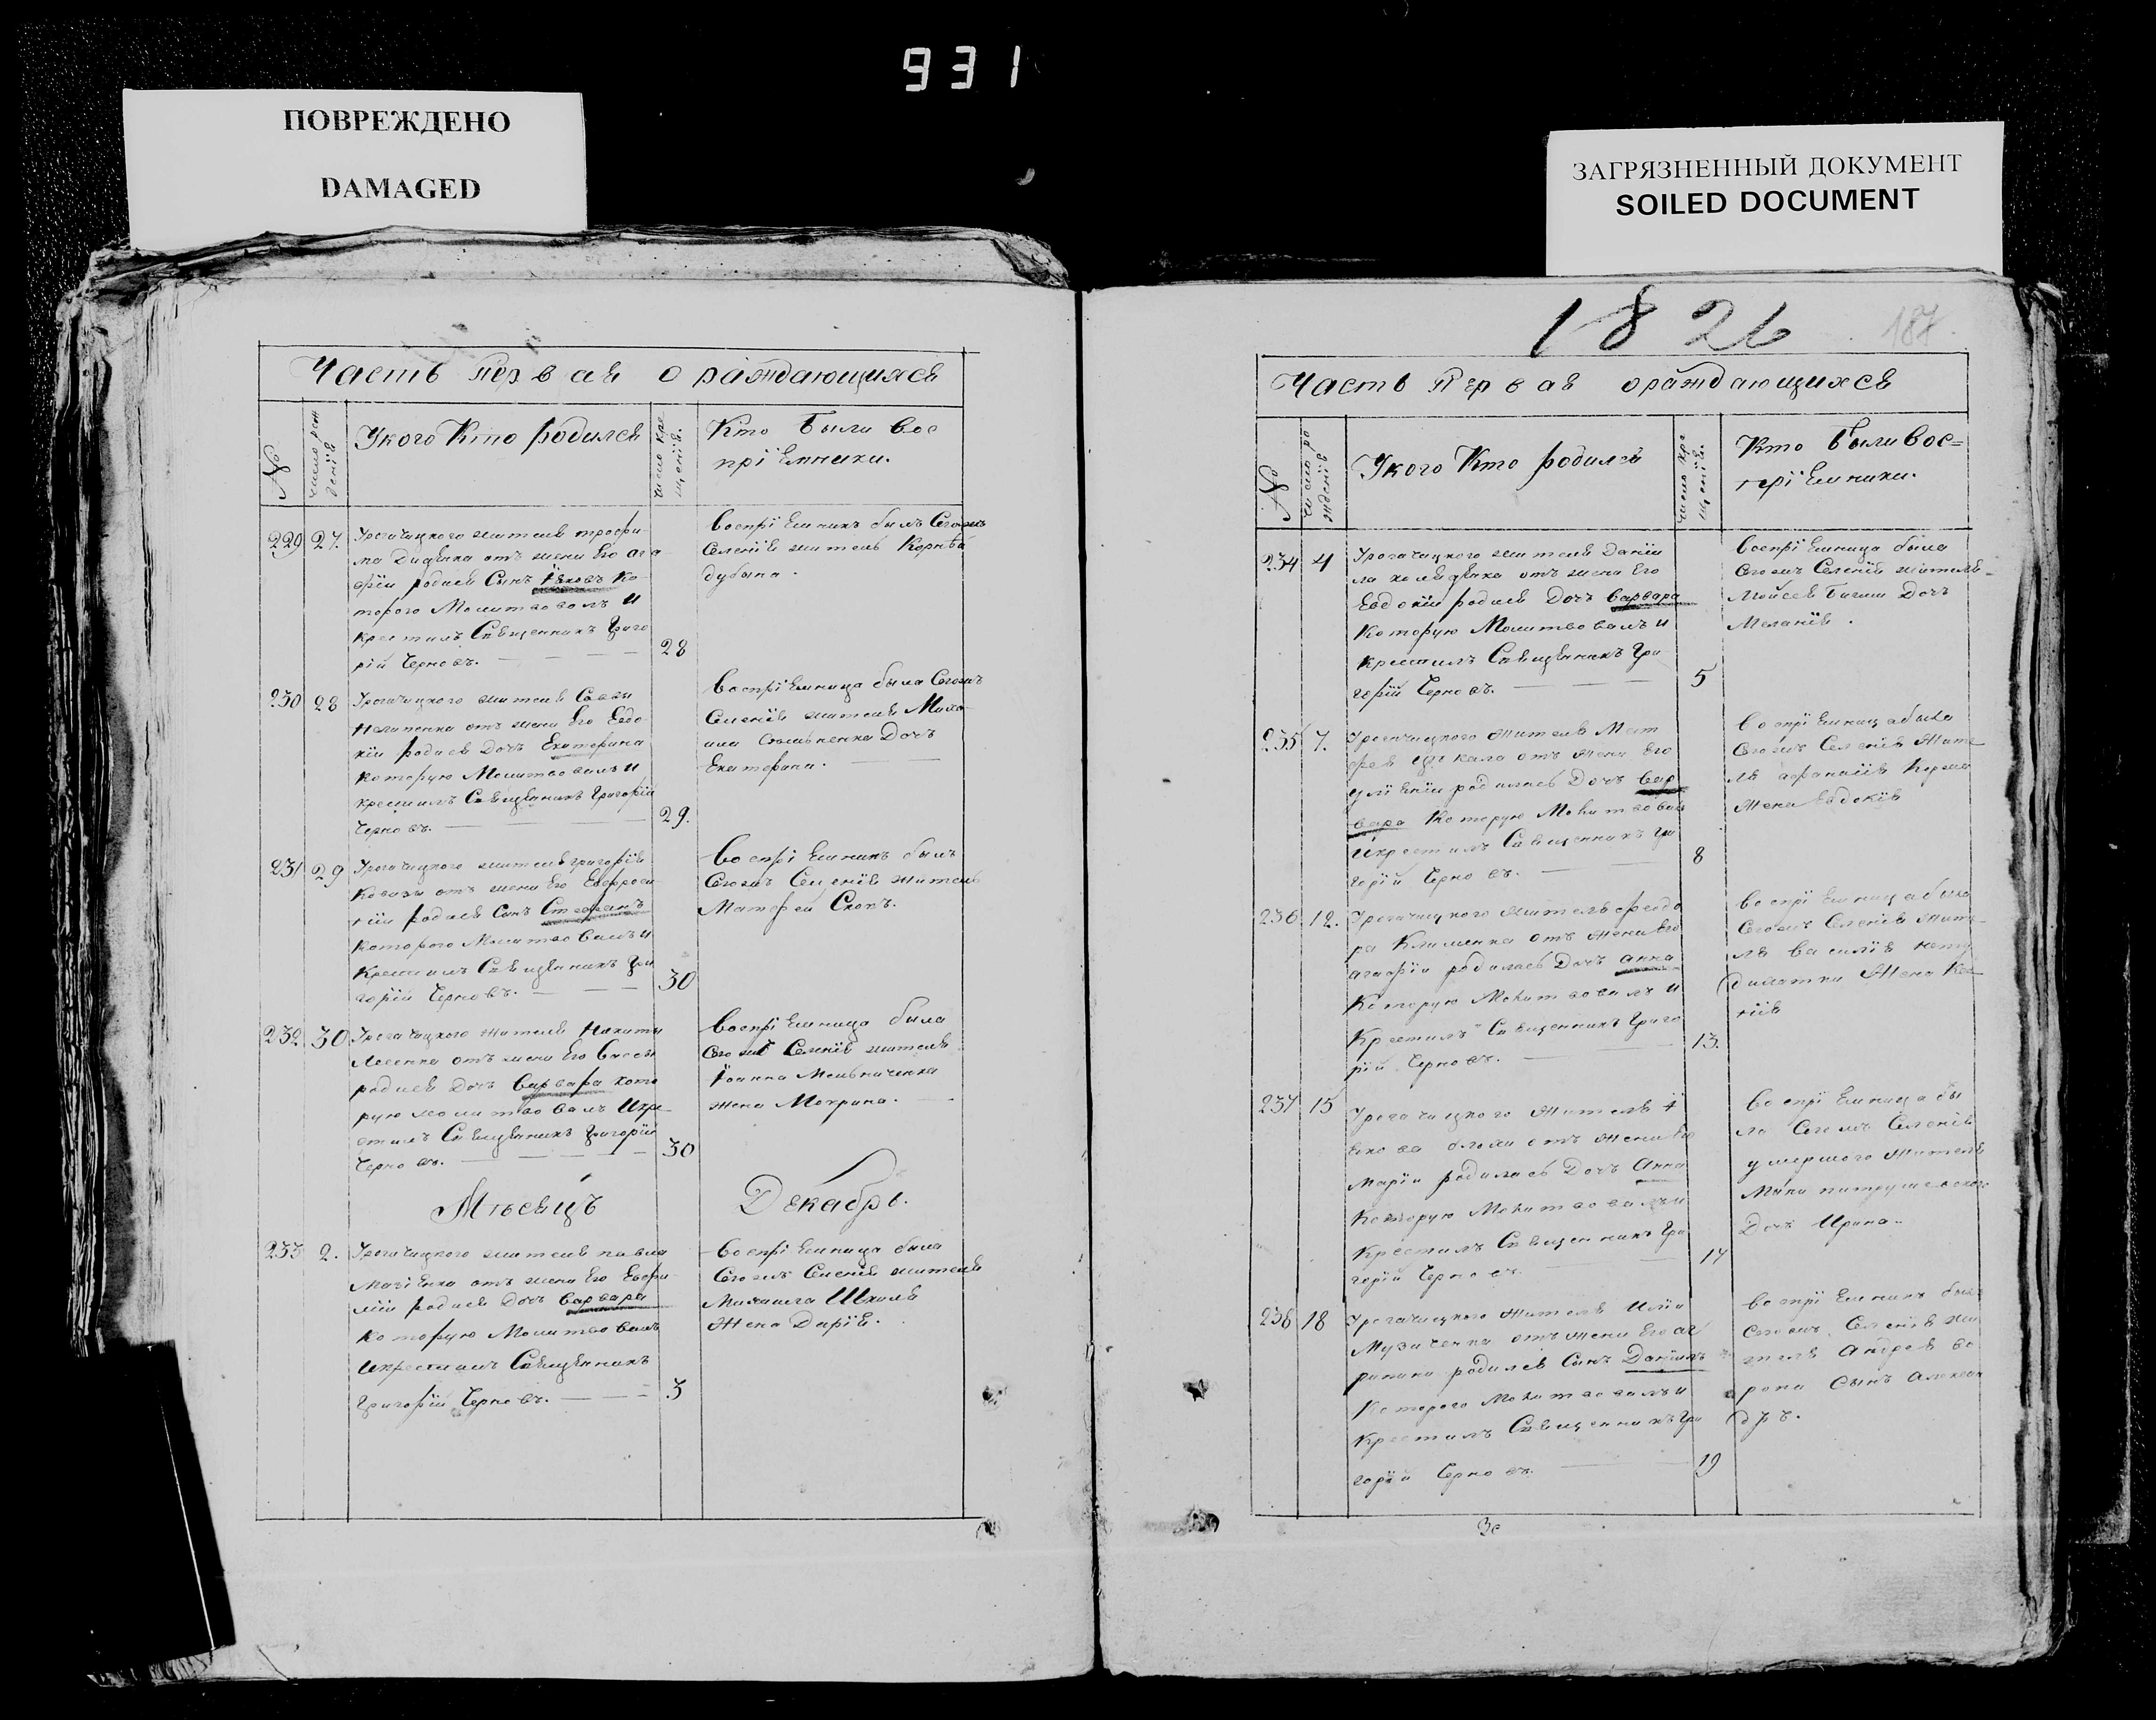 931
ПОВРЕЖДЕНО
DAMAGED
ЗАГРЯЗНЕННЫЙ ДОКУМЕНТ
SOILED DOCUMENT
Часть первая о раждающихся
№
число рож
денія
Укого Кто родился
число кре
щенія.
Кто Были вос
пріемники.
229 27. Урогачицкого жителя трофи
ма Диденка отъ жени Его ага
фіи родися Сынъ Іяковъ Ко
торого Молитвовалъ И
крестилъ Священникъ Григо
рій Черновъ. 28
воспріемникъ былъ Сегожъ
Селенія житель Корнѣй
дубина.
230 28 Урогачицкого жителя Саввы
отъ жени Его Евдо
кіи родися Дочъ Екатерина
которую Молитвовалъ И
крестилъ Священникъ Григорій
Черновъ. 29.
воспріемница была Сегожъ
Селенія жителя Миха
ила Дочъ
Екатерина.
231 29 Урогачицкого жителя григорія
Козазы отъ жени Его Евфроси
ніи родися Синъ Стефанъ
которого Молитвовалъ И
Крестилъ Священникъ Гри
горій Черновъ. 30
воспріемникъ былъ
Сегожъ Селенія житель
Матфей Скокъ.
232. 30 Урогачицкого жителя Никиты
Лесенка отъ жени Его Вассы
родися Дочъ Варвара кото
рую молитвовалъ Икре
стилъ Священникъ Григорій
Черновъ. 30
воспріемница была
Сегожъ Селенія жителя
Іоанна Мельниченка
жена Мокрина.
Мѣсяцъ Декабрь.
233 2. Урогачицкого жителя павла
отъ жени Его Евфи
міи родися Дочъ Варвара
которую Молитвовалъ
Икрестилъ Священникъ
Григорій Черновъ. 3
воспріемница была
Сегожъ Селенія жителя
Михаила Шкиля
Жена Дарія.
1826
187.
Часть Первая ораждающихся
№
число ро
жденія
Укого Кто родился
число кре
щенія.
Кто Были вос=
пріемники.
234 4 Урогачицкого жителя Даніи
ла отъ жени Его
Евдокіи родися Дочъ Варвара
Которую Молитвовалъ И
крестилъ Священникъ Гри
горій Черновъ. 5
воспріемница была
Сегожъ Селенія жителя
Мойсея Дочъ
Меланія.
235 7. Урогачицкого жителя Мат
фея Цикала отъ жени Его
уліяніи родилась Дочъ Вар
вара Которую Молитвовалъ
Икрестилъ Священникъ Гри
горій Черновъ. 8
воспріемница была
Сегожъ Селенія Жите
ля афанасія
Жена Евдокія
236. 12. Урогачицкого жителя феодо
ра Клименка отъ жени Его
агафіи родилась Дочъ анна
Которую Молитвовалъ И
Крестилъ Священникъ Григо
рій Черновъ. 13.
воспріемница была
Сегожъ Селенія Жите
ля василія
Жена Ксе
нія
237 15 Урогачицкого Жителя І
якова блохи отъ Жени Его
Маріи родилась Дочъ Анна
Которую Молитвовалъ И
Крестилъ Священникъ Гри
горій Черновъ. 17
воспріемница бы
ла Сегожъ Селенія
умершого Жителя
Дочъ Ирина.
238 18 Урогачицкого Жителя Иліи
Музиченка отъ жени Его аг
рипини родился Синъ Даніилъ
Которого Молитвовалъ И
Крестилъ Священникъ Гри
горій Черновъ. 19
воспріемникъ былъ
Сегожъ Селенія жи
теля Андрея во
рони Сынъ Алексан
дръ.